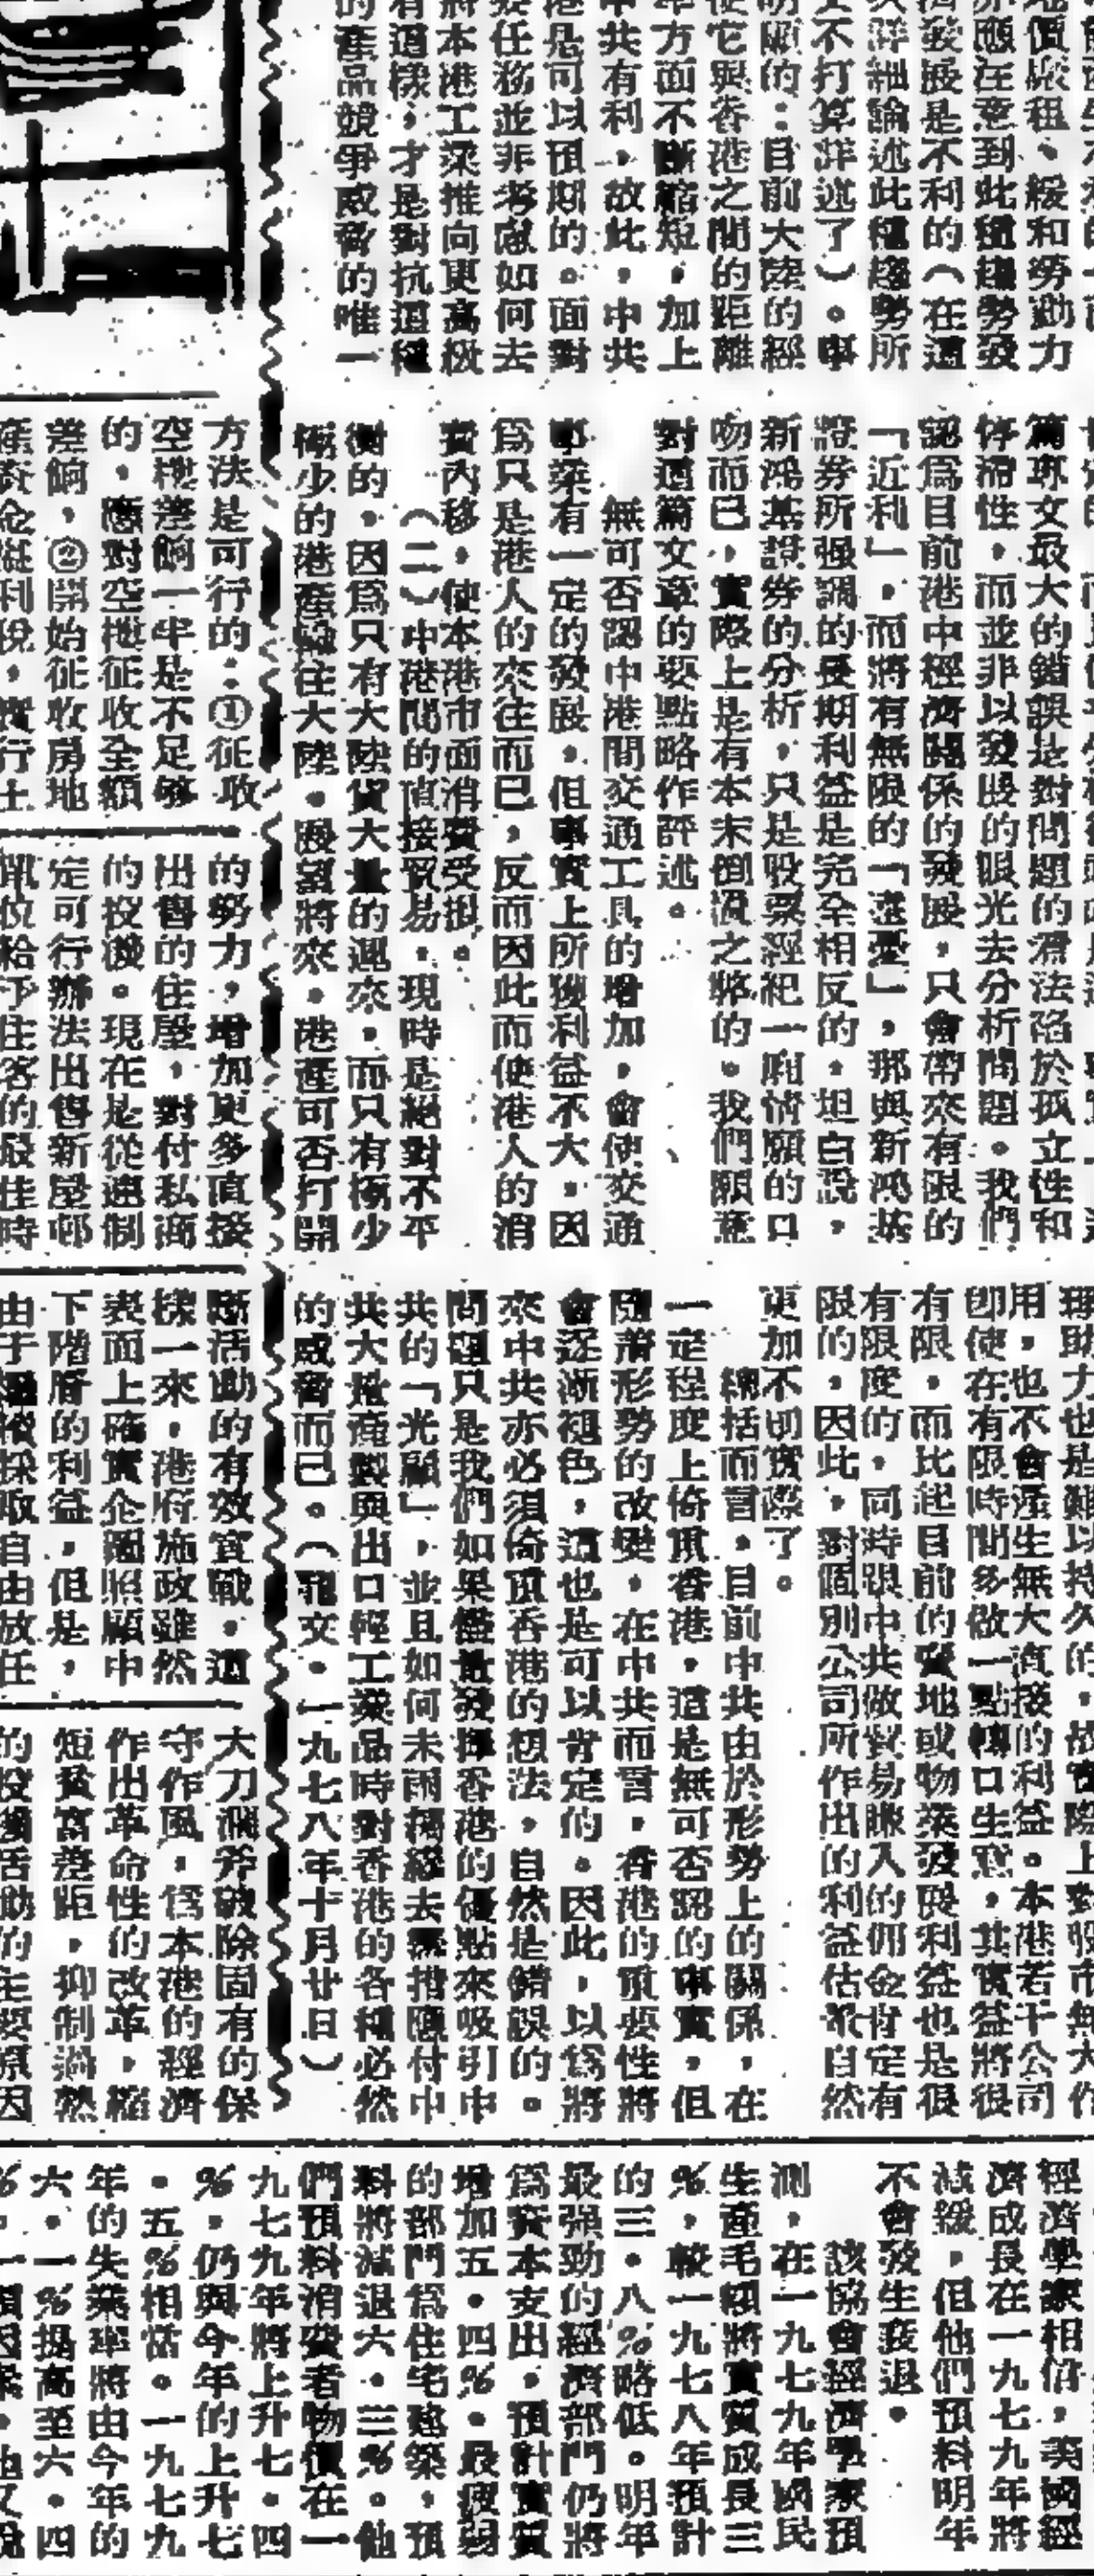 地價廠租、緩和勞動力
應注意到此種趨勢發
濟發展是不利的（在這
詳細論述此種趨勢所
不打算詳述了）。事
明顯的：目前大陸的經
使它與香港之間的距離
方面不斷縮短，加上
中共有利，故此，中共
港是可以預期的。面對
任務並非考慮如何去
將本港工業推向更高級
有這樣，才是對抗這種
的產品競爭威脅的唯一
篇專文最大的錯誤是對問題的看法陷於孤立性和
停滯性，而並非以發展的眼光去分析問題。我們
認爲目前港中經濟關係的發展，只會帶來有限的
「近利」，而將有無限的「遠憂」，那與新鴻基
證券所强調的長期利益是完全相反的。坦白說，
新鴻基證券的分析，只是股票經紀一廂情願的口
吻而已，實際上是有本末倒置之弊的。我們願意
對這篇文章的要點略作評述。
無可否認中港間交通工具的增加，會使交通
事業有一定的發展，但事實上所獲利益不大，因
爲只是港人的來往而已，反而因此而使港人的消
費內移，使本港市面消費受損。
（二）中港間的直接貿易，現時是絕對不平
衡的，因爲只有大陸貨大量的運來，而只有極少
極少的港產輸往大陸。展望將來，港產可否打開
理助力也是難以持久的，故實際上對股市無大作
用，也不會產生無大直接的利益。本港若干公司
卽使在有限時間多做一點轉口生意，其實益將很
有限，而比起目前的實地或物業發展利益也是很
有限度的，同時跟中共做貿易賺入的佣金肯定有
限的，因此，對個別公司所作出的利益估計自然
更加不切實際了。
總括而言，目前中共由於形勢上的關係，在
一定程度上倚重香港，這是無可否認的事實，但
隨着形勢的改變，在中共而言，香港的重要性將
會逐漸褪色，這也是可以肯定的。因此，以爲將
來中共亦必須倚重香港的想法，自然是錯誤的。
問題只是我們如果儘量發揮香港的優點來吸引中
共的「光顧」，並且如何未雨綢繆去採措應付中
共大量產製與出口輕工業品時對香港的各種必然
的威脅而已。（孔文・一九七八年十月廿日）
方法是可行的：①征收
空樓差餉一半是不足够
的，應對空樓征收全額
差餉，②開始征收房地
的努力，增加更多直接
出售的住屋，對付私商
的投機。現在是從速制
定可行辦法出售新屋邨
給予住客的最佳時
活動的有效宣戰。這
樣一來，港府施政雖然
表面上確實企圖照顧中
下階層的利益，但是，
由于採取自由放任
大刀濶斧破除固有的保
守作風，爲本港的經濟
作出革命性的改革，縮
短貧富差距，抑制過熱
的投機活動的主要原因
經濟學家相信，美國經
濟成長在一九七九年將
減緩，但他們預料明年
不會發生衰退。
該協會經濟學家預
測，在一九七九年國民
生產毛額將實質成長三
％，較一九七八年預計
的三・八％略低。明年
最强勁的經濟部門仍將
爲資本支出，預計實質
增加五・四％。最疲弱
的部門爲住宅建築，預
料將減退六・三％。他
們預料消費者物價在一
九七九年將上升七・四
％，仍與今年的上升七
・五％相當。一九七九
年的失業率將由今年的
六・一％提高至六・四